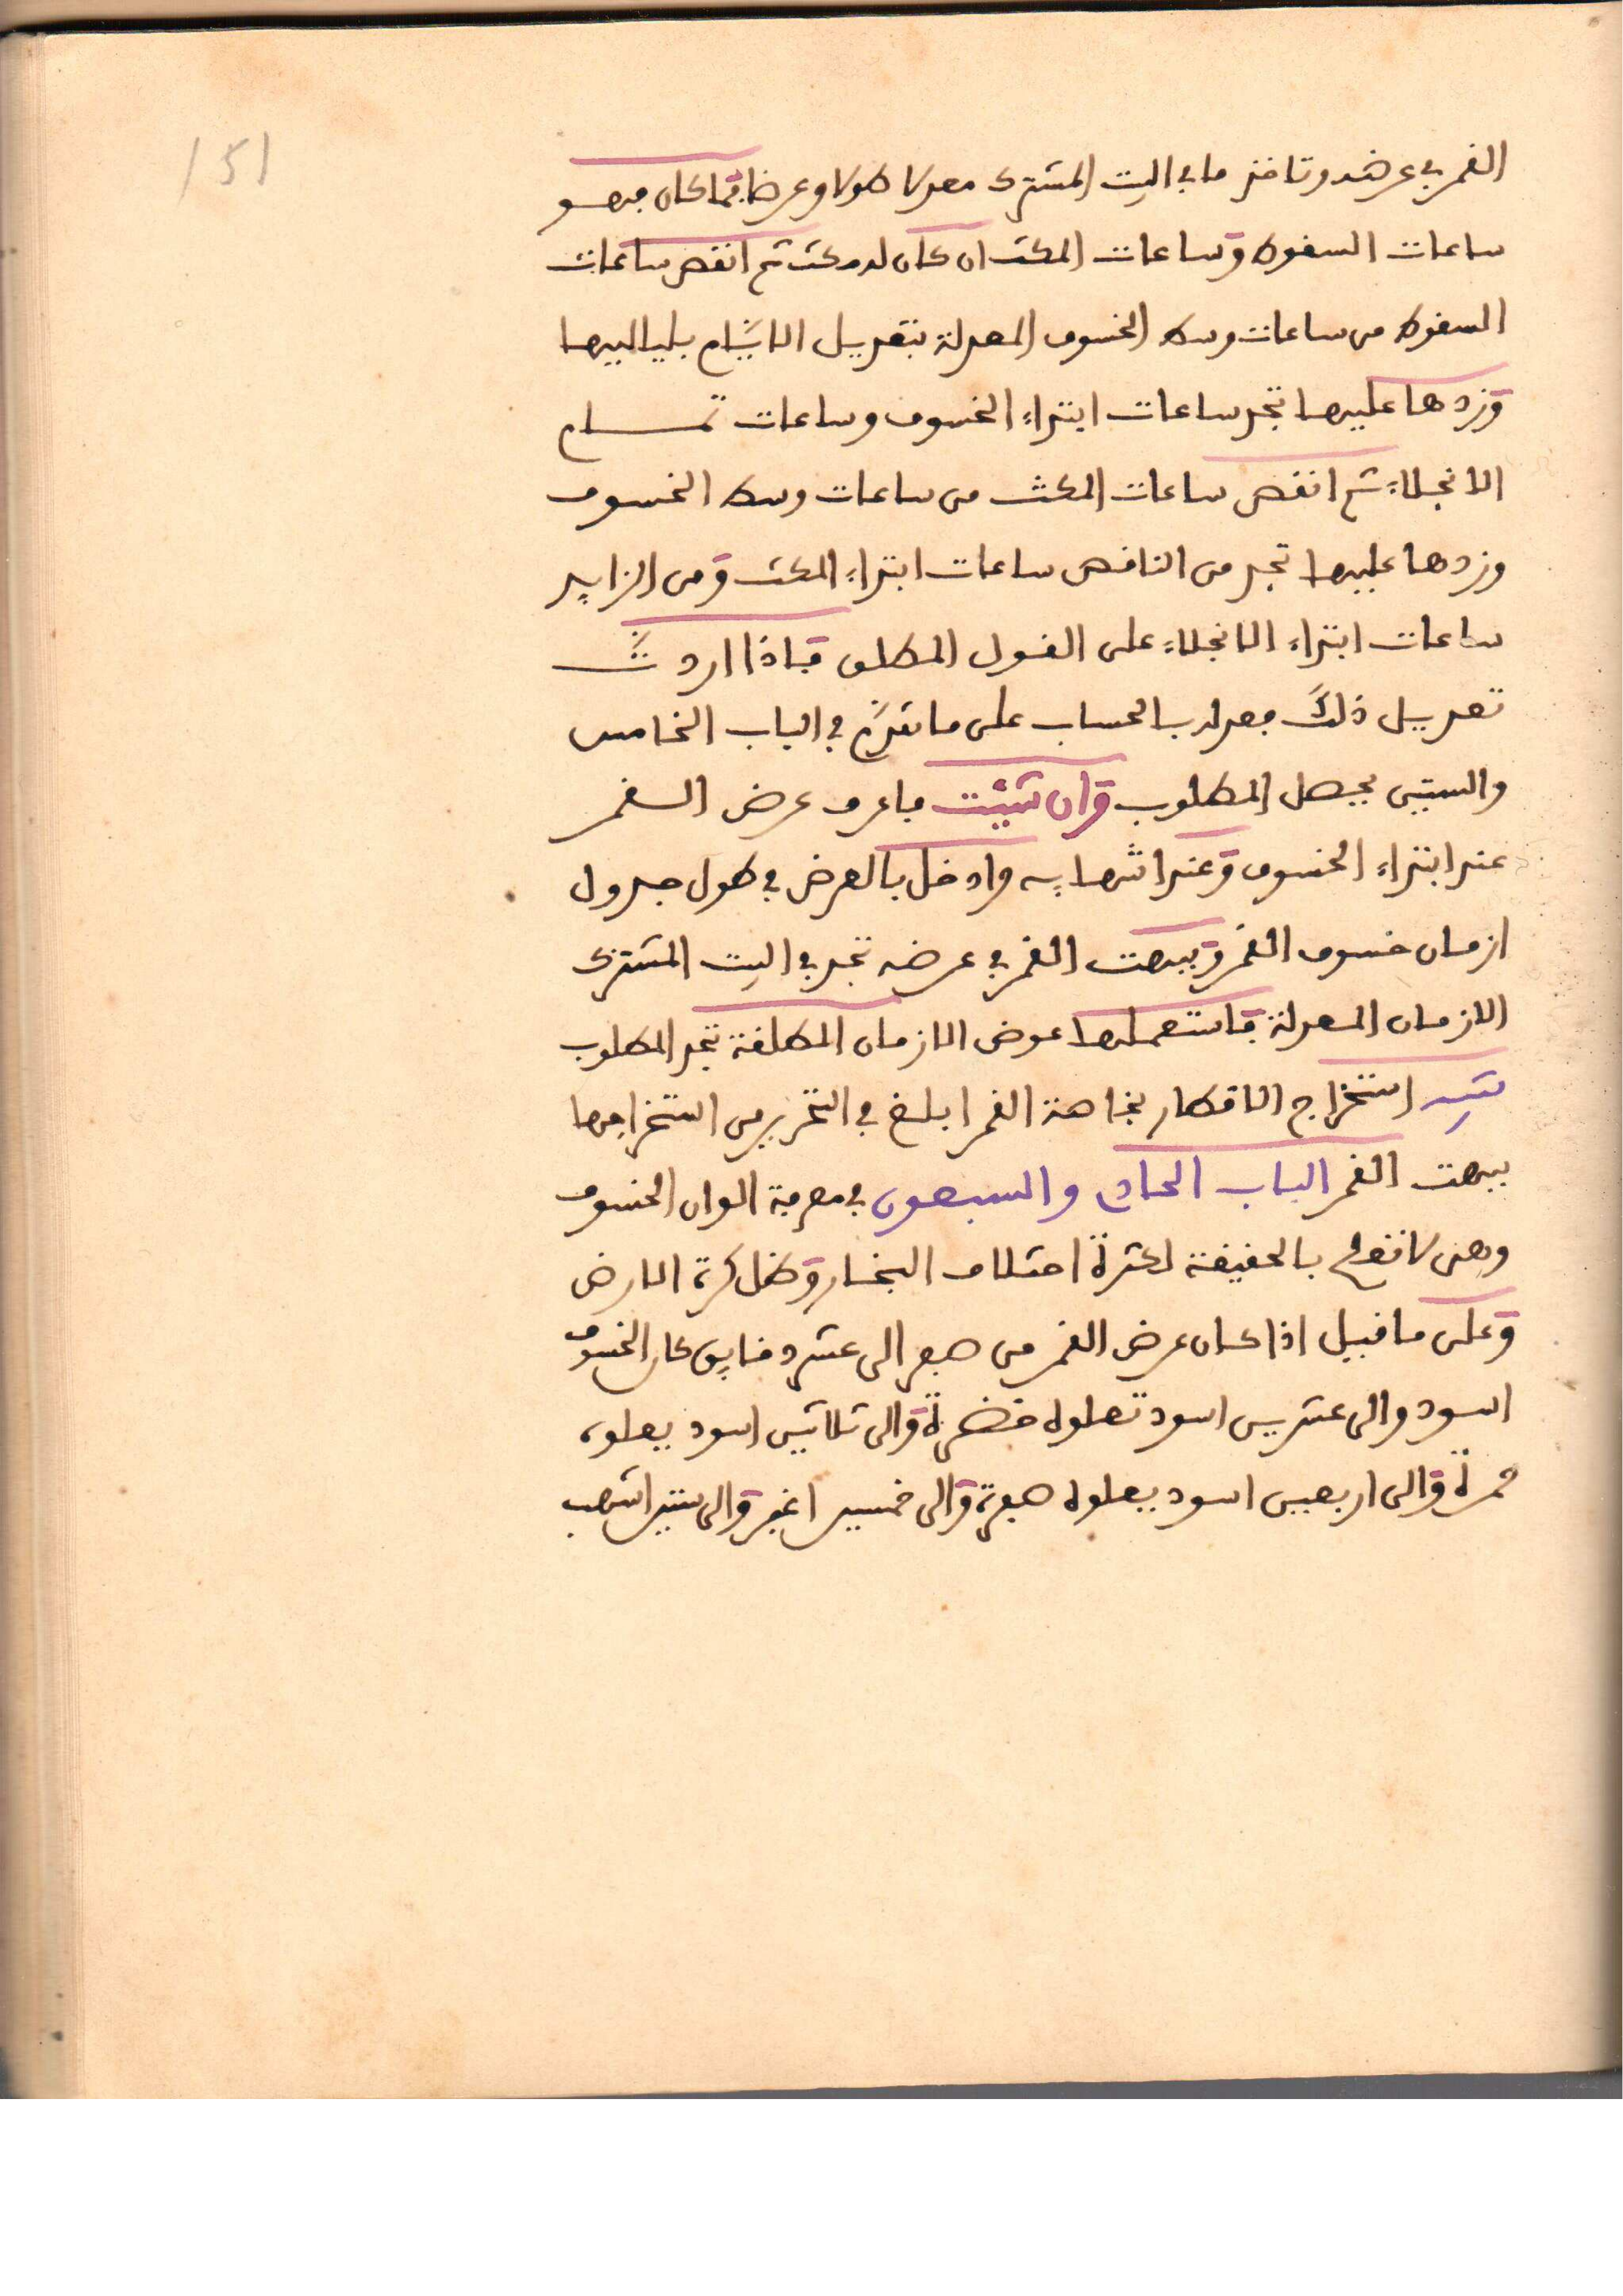 151
القمر في عرضه وتاخذ ما في البيت المشترك معدلا طولا وعرضا فما كان فهو
ساعات السقوط وساعات المكث ان كان له مكث ثم انقص ساعات
السقوط من ساعات وسط الخسوف المعدلة بتعديل الايام بلياليها
وزدها عليها تجد ساعات ابتداء الخسوف وساعات تمام
الانجلاء ثم انقص ساعات المكث من ساعات وسط الخسوف
وزدها عليها تجد من الناقص ساعات ابتداء المكث ومن الزايد
ساعات ابتداء الانجلاء على القول المطلق فاذا اردت
تعديل ذلك فعدله بالحساب على ما تقدم في الباب الخامس
والستين يحصل المطلوب وان شئت فاعرف عرض القمر
عند ابتداء الخسوف وعند انتهايه وادخل بالعرض في طول جدول
ازمان خسوف القمر وببهت القمر في عرضه تجد في البيت المشترك
الازمان المعدلة فاستعملها عوض الازمان المطلقة تجد المطلوب
استخراج الاقطار بخاصة القمر ابلغ في التحرير من استخراجها
ببهت القمر الباب الحادي والسبعون في معرفة الوان الخسوف
وهي لا تقع بالحقيقة لكثرة اختلاف البخار وظل كرة الارض
وعلى ما قيل اذا كان عرض القمر من صفر الى عشر دقايق كان الخسوف
اسود والى عشرين اسود تعلوه خضرة والى ثلاثين اسود يعلوه
حمرة والى اربعين اسود يعلوه صفرة والى خمسين اغبر والى ستين اشهب